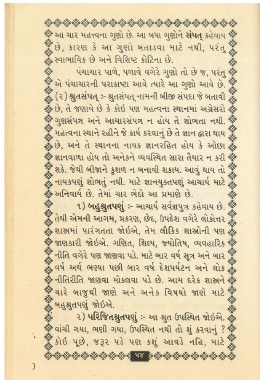 આ ચાર મહત્ત્વના ગુણો છે. આ બધા ગુણોને સંપત્ કહેવાય
છે, કારણ કે આ ગુણો બતાડવા માટે નથી, પરંતુ
સ્વાભાવિક છે અને વિશિષ્ટ કોટિના છે.
પંચાચાર પાળે, પળાવે વગેરે ગુણો તો છે જ, પરંતુ
એ પંચાચારની પરાકાષ્ઠા આવે ત્યારે આ ગુણો આવે છે.
(૨) શ્રુતસંપત્ :- શ્રુતસંપત્ નામની બીજી સંપદા જે બતાવી
છે, તે જણાવે છે કે કોઈ પણ મહત્ત્વના સ્થાનમાં અગ્રેસરો
ગુણસંપન્ન અને આચારસંપન્ન ન હોય તે શોભતા નથી.
મહત્ત્વના સ્થાને રહીને જે કાર્ય કરવાનું છે તે જ્ઞાન દ્વારા થાય
છે, અને તે સ્થાનના નાયક જ્ઞાનરહિત હોય કે ઓછા
જ્ઞાનવાળા હોય તો અનેકને વ્યવસ્થિત સારા તૈયાર ન કરી
શકે. જેથી બીજાને કુશળ ન બનાવી શકાય. આવું થાય તો
નાયકપણું શોભતું નથી. માટે જ્ઞાનયુક્તપણું આચાર્ય માટે
અનિવાર્ય છે. તેમાં ચાર ભેદો આ પ્રમાણે છે.
૧) બહુશ્રુતપણું :- આચાર્ય સર્વજ્ઞપુત્ર કહેવાય છે.
તેથી એમની આગમ, પ્રકરણ, છેદ, ઉપદેશ વગેરે લોકોત્તર
શાસ્ત્રમાં પારંગતતા જોઈએ, તેમ લૌકિક શાસ્ત્રોની પણ
જાણકારી જોઈએ. ગણિત, શિલ્પ, જ્યોતિષ, વ્યવહારિક
નીતિ વગેરે પણ જાણવા પડે. માટે બાર વર્ષ સૂત્ર અને બાર
વર્ષ અર્થ ભણ્યા પછી બાર વર્ષ દેશપર્યટન અને લોક
નીતિરીતિ જાણવા મોકલવા પડે છે. આમ દરેક શાસ્ત્રને
ચારે બાજુથી જાણે અને અનેક વિષયો જાણે માટે
બહુશ્રુતપણું જોઈએ.
૨) પરિજિતશ્રુતપણું :- આ શ્રુત ઉપસ્થિત જોઈએ.
વાંચી ગયા, ભણી ગયા, ઉપસ્થિત નથી તો શું કરવાનું ?
કોઈ પૂછે, જરૂર પડે પણ કશું આવડે નહિ, માટે
૫૪